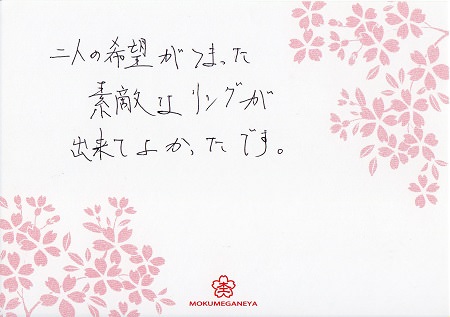 二人の希望がつまった
素敵なリングが
出来てよかったです。
MOKUMEGANEYA